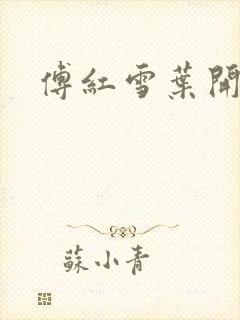 傅紅雪葉開
蘇小青